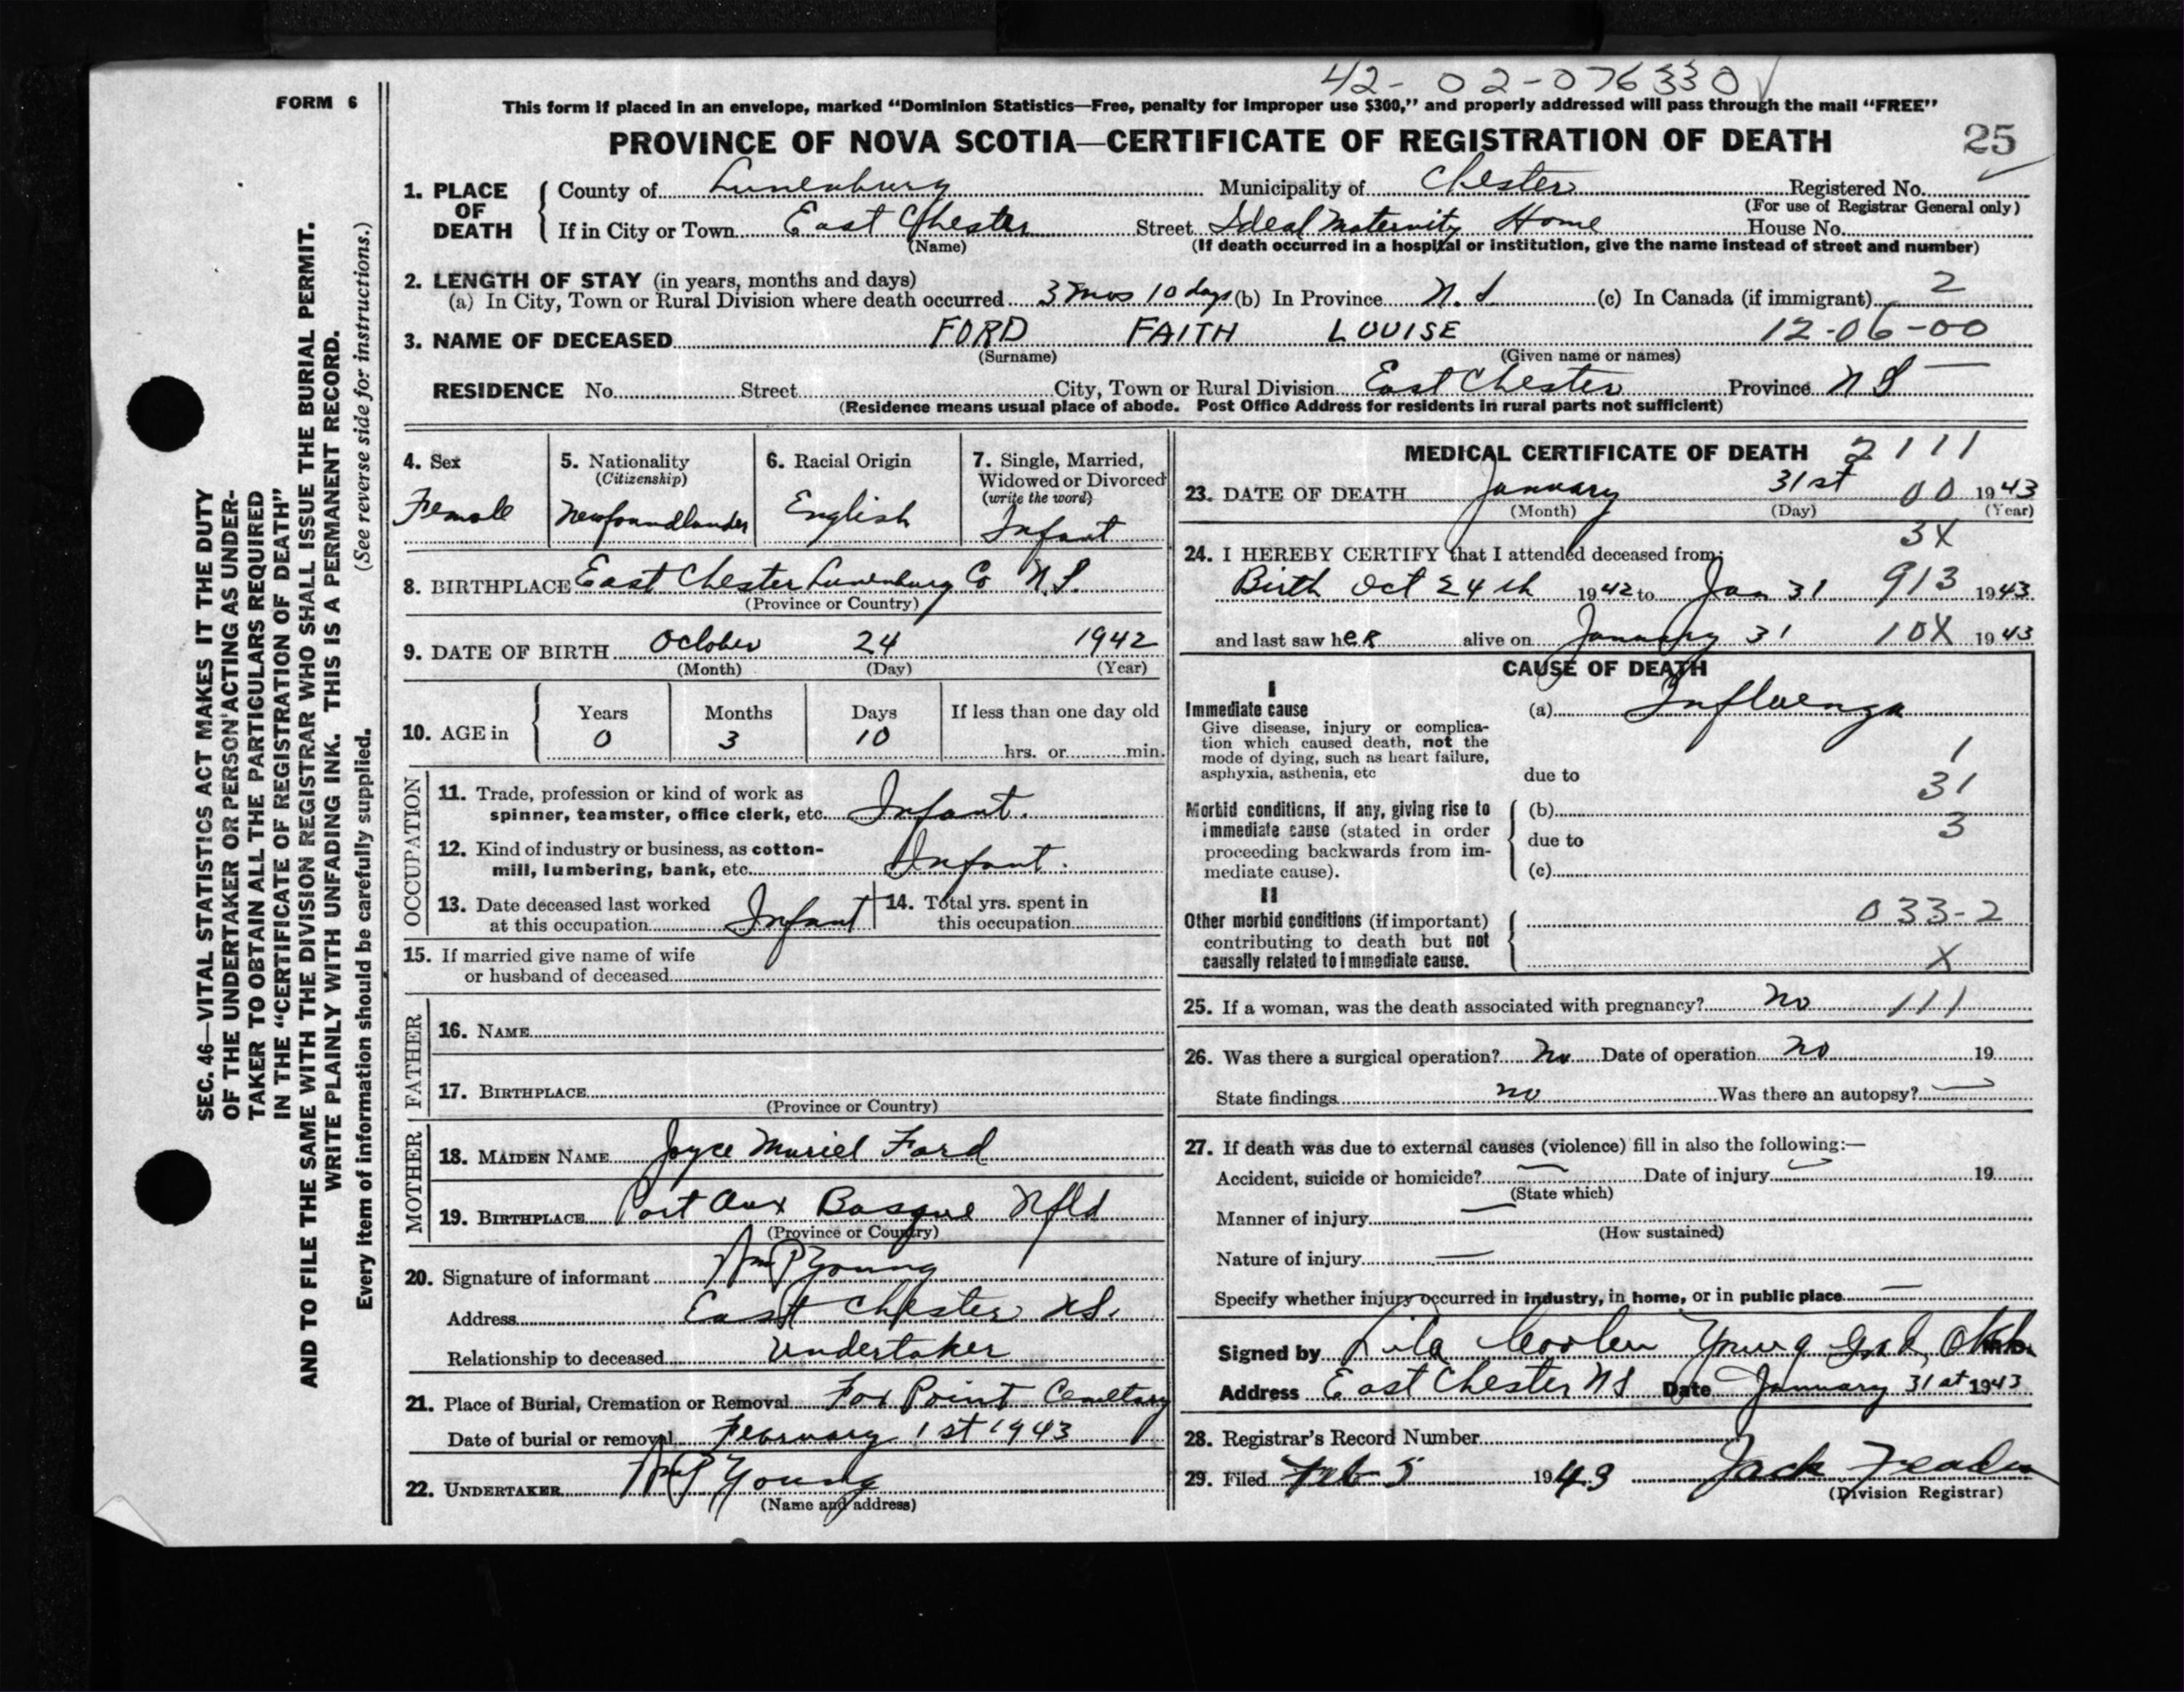 42-02-076330
FORM 6
This form if placed in an envelope, marked "Dominion Statistics—Free, penalty for improper use $300," and properly addressed will pass through the mail "FREE"
PROVINCE OF NOVA SCOTIA—CERTIFICATE OF REGISTRATION OF DEATH 25
1. PLACE OF DEATH
County of Lunenburg Municipality of Chester Registered No.
(For use of Registrar General only)
If in City or Town East Chester Street Ideal Maternity Home House No.
(Name) (If death occurred in a hospital or institution, give the name instead of street and number)
2. LENGTH OF STAY (in years, months and days)
(a) In City, Town or Rural Division where death occurred 3 mos 10 days (b) In Province N.S (c) In Canada (if immigrant) 2
3. NAME OF DECEASED FORD FAITH LOUISE 12-06-00
(Surname) (Given name or names)
RESIDENCE No. Street City, Town or Rural Division East Chester Province N S
(Residence means usual place of abode. Post Office Address for residents in rural parts not sufficient)
4. Sex
Female
5. Nationality
(Citizenship)
Newfoundlander
6. Racial Origin
English
7. Single, Married,
Widowed or Divorced
(write the word)
Infant
8. BIRTHPLACE East Chester Lunenburg Co N.S.
(Province or Country)
9. DATE OF BIRTH October 24 1942
(Month) (Day) (Year)
10. AGE in
Years Months Days If less than one day old
0 3 10 hrs. or min.
OCCUPATION
11. Trade, profession or kind of work as
spinner, teamster, office clerk, etc. Infant.
12. Kind of industry or business, as cotton-
mill, lumbering, bank, etc. Infant.
13. Date deceased last worked
at this occupation Infant
14. Total yrs. spent in
this occupation
15. If married give name of wife
or husband of deceased
FATHER
16. NAME
17. BIRTHPLACE
(Province or Country)
MOTHER
18. MAIDEN NAME Joyce Muriel Ford
19. BIRTHPLACE Port Aux Basque Nfld
(Province or Country)
20. Signature of informant Wm P Young
Address East Chester N.S.
Relationship to deceased Undertaker
21. Place of Burial, Cremation or Removal Fox Point Cemetary
Date of burial or removal February 1st 1943
22. UNDERTAKER Wm P Young
(Name and address)
MEDICAL CERTIFICATE OF DEATH 2111
23. DATE OF DEATH January 31st 00 1943
(Month) (Day) (Year)
3X
24. I HEREBY CERTIFY that I attended deceased from:
Birth Oct 24th 1942 to Jan 31 913 1943
and last saw her alive on January 31 10X 1943
CAUSE OF DEATH
I
Immediate cause
Give disease, injury or complica-
tion which caused death, not the
mode of dying, such as heart failure,
asphyxia, asthenia, etc
(a) Influenza
1
due to
31
Morbid conditions, if any, giving rise to
immediate cause (stated in order
proceeding backwards from im-
mediate cause).
(b)
3
due to
(c)
II
Other morbid conditions (if important)
contributing to death but not
causally related to immediate cause.
033-2
X
25. If a woman, was the death associated with pregnancy? No 111
26. Was there a surgical operation? No Date of operation no 19
State findings no Was there an autopsy?
27. If death was due to external causes (violence) fill in also the following:—
Accident, suicide or homicide? Date of injury 19
(State which)
Manner of injury
(How sustained)
Nature of injury
Specify whether injury occurred in industry, in home, or in public place
Signed by Lila Coolen Young
Address East Chester N S Date January 31st 1943
28. Registrar's Record Number
29. Filed Feb 5 1943 Jack
(Division Registrar)
SEC. 46—VITAL STATISTICS ACT MAKES IT THE DUTY
OF THE UNDERTAKER OR PERSON ACTING AS UNDER-
TAKER TO OBTAIN ALL THE PARTICULARS REQUIRED
IN THE "CERTIFICATE OF REGISTRATION OF DEATH"
AND TO FILE THE SAME WITH THE DIVISION REGISTRAR WHO SHALL ISSUE THE BURIAL PERMIT.
WRITE PLAINLY WITH UNFADING INK. THIS IS A PERMANENT RECORD.
Every item of information should be carefully supplied. (See reverse side for instructions.)